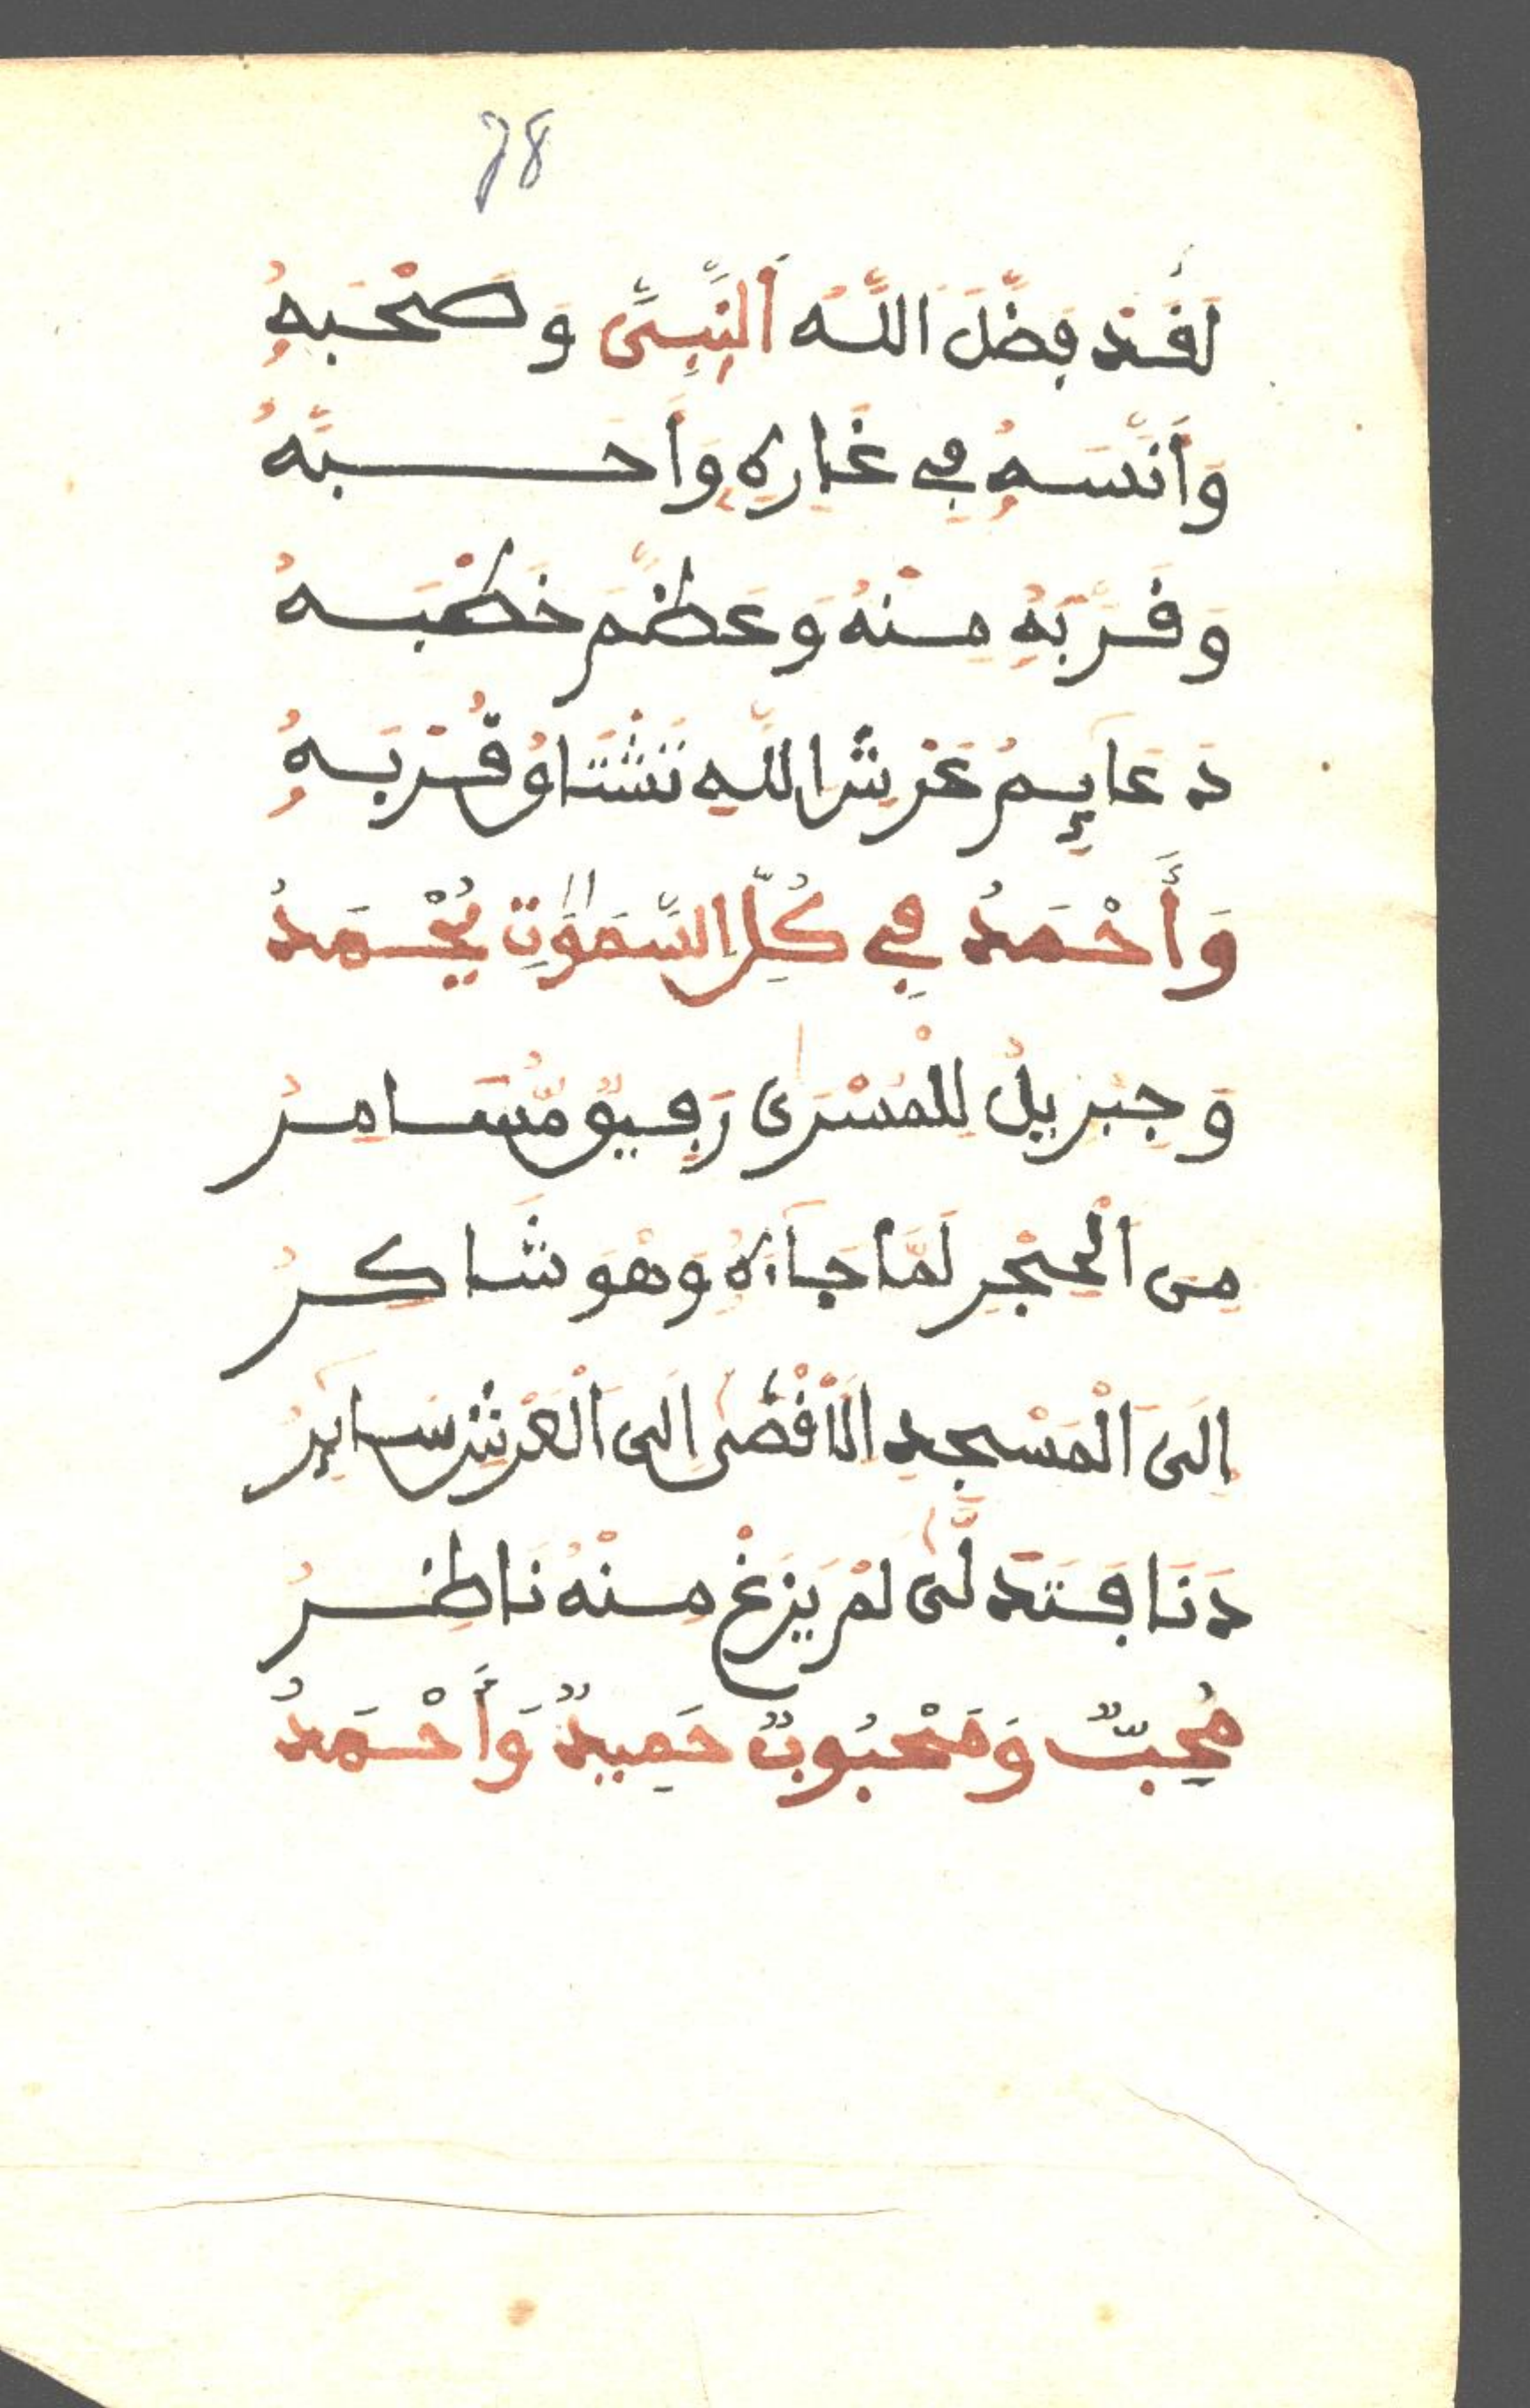 78
لَقَدْ فَضَّلَ اللَّهُ النَّبِيَّ وَصَحْبَهُ
وَأَنَّسَهُ فِي غَارِهِ وَأَحَبَّهُ
وَقَرَّبَهُ مِنْهُ وَعَظَّمَ خَطْبَهُ
دَعَايِمُ عَرْشِ اللَّهِ تَشْتَاقُ قُرْبَهُ
وَأَحْمَدُ فِي كُلِّ السَّمَوَٰتِ يُحْمَدُ
وَجِبْرِيلُ لِلْمَسْرَى رَفِيقٌ مُّسَامِرُ
مِنَ الْحِجْرِ لَمَّا جَآءَهُ وَهْوَ شَاكِرُ
إِلَى الْمَسْجِدِ الْأَقْصَى إِلَى الْعَرْشِ سَآيِرُ
دَنَا فَتَدَلَّى لَمْ يَزِغْ مِنْهُ نَاظِرُ
مُحِبٌّ وَمَحْبُوبٌ حَمِيدٌ وَأَحْمَدُ